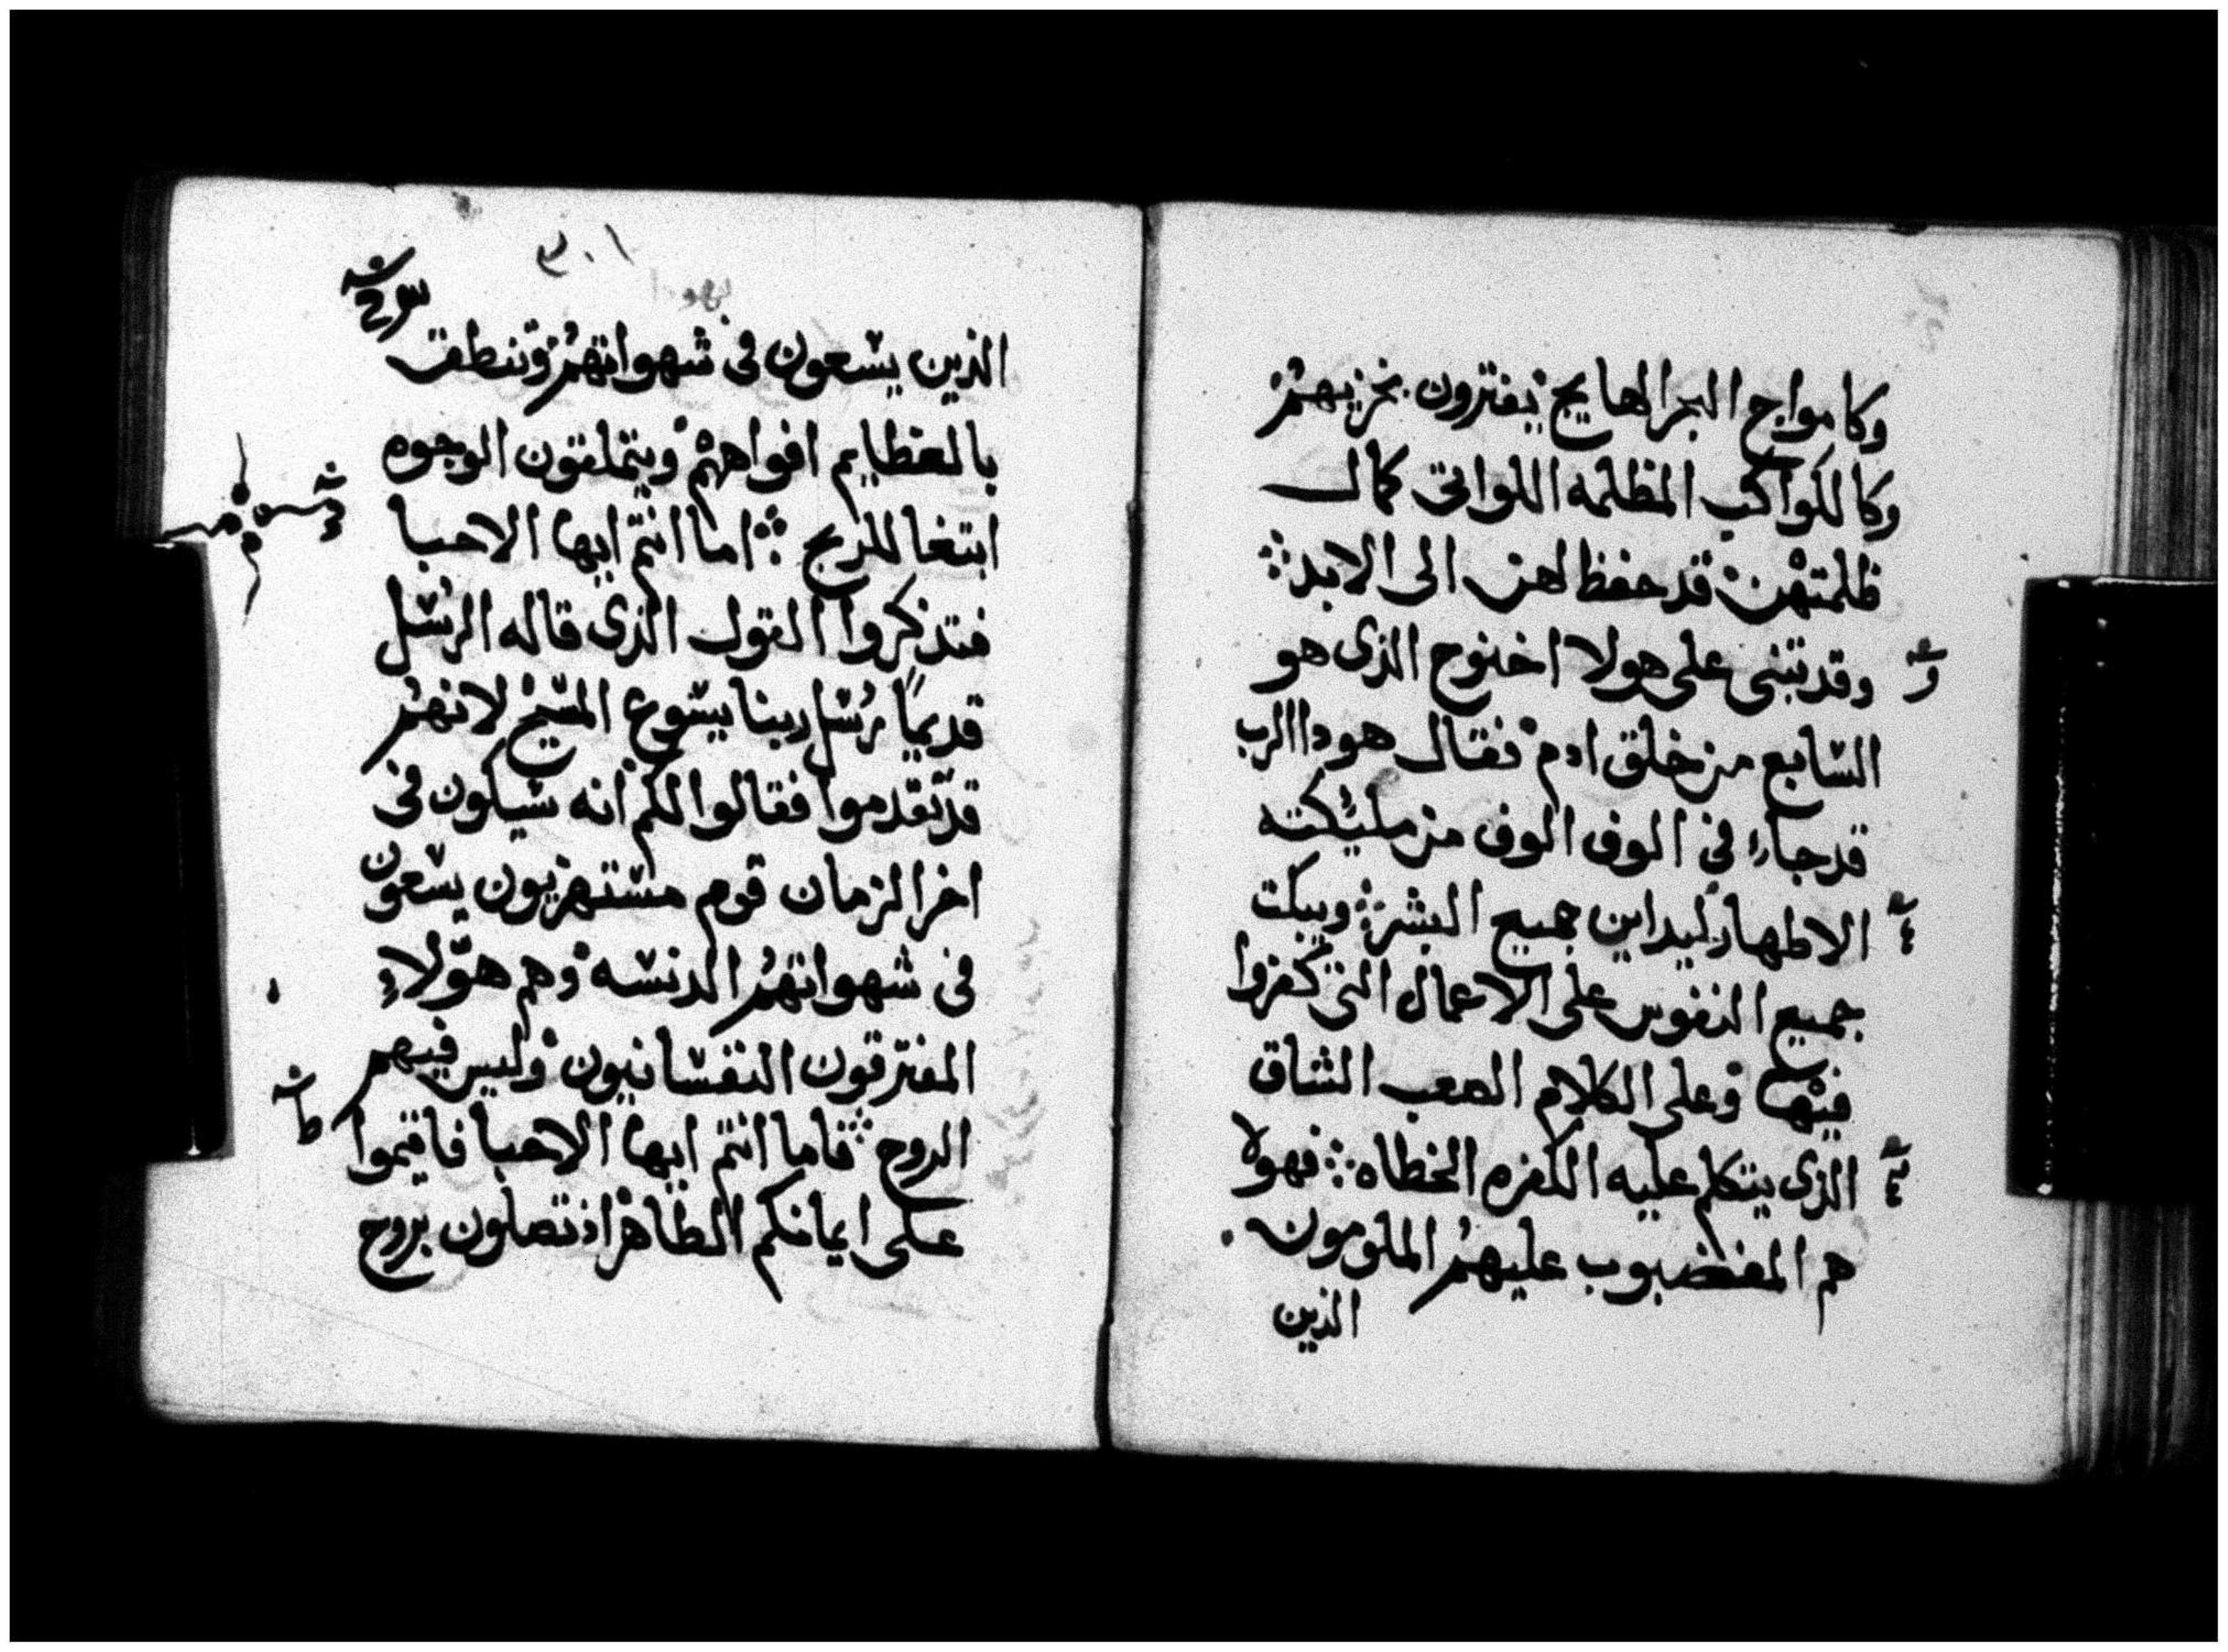 وكامواج البحر الهايج يفترون بخزيهم
وكالكواكب المظلمه اللواتى كمال
ظلمتهن قد حفظ لهن الى الابد
وقد تبنى على هولا اخنوخ الذى هو
السابع من خلق ادم فقال هودا الرب
قد جاء فى الوف الوف من مليكته
الاطهار ليداين جميع البشر ويبكت
جميع النفوس على الاعمال التى كفروا
فيها وعلى الكلام الصعب الشاق
الذى يتكلم عليه الكفره الخطاه فهولا
هم المغضبوب عليهم الملومون
الذين
٣٠١
الذين يسعون فى شهواتهم وتنطق
بالعظايم افواههم ويتملقون الوجوه
ابتغا للربح اما انتم ايها الاحبا
فتذكروا القول الذى قاله الرسل
قديمًا رسل ربنا يسوع المسيح لانهم
قد تقدموا فقالوا لكم انه سيكون فى
اخر الزمان قوم مستهزيون يسعون
فى شهواتهم الدنسه وهم هولاء
المفترقون النفسانيون وليس فيهم
الروح فاما انتم ايها الاحبا فاقيموا
على ايمانكم الطاهر اذ تصلون بروح